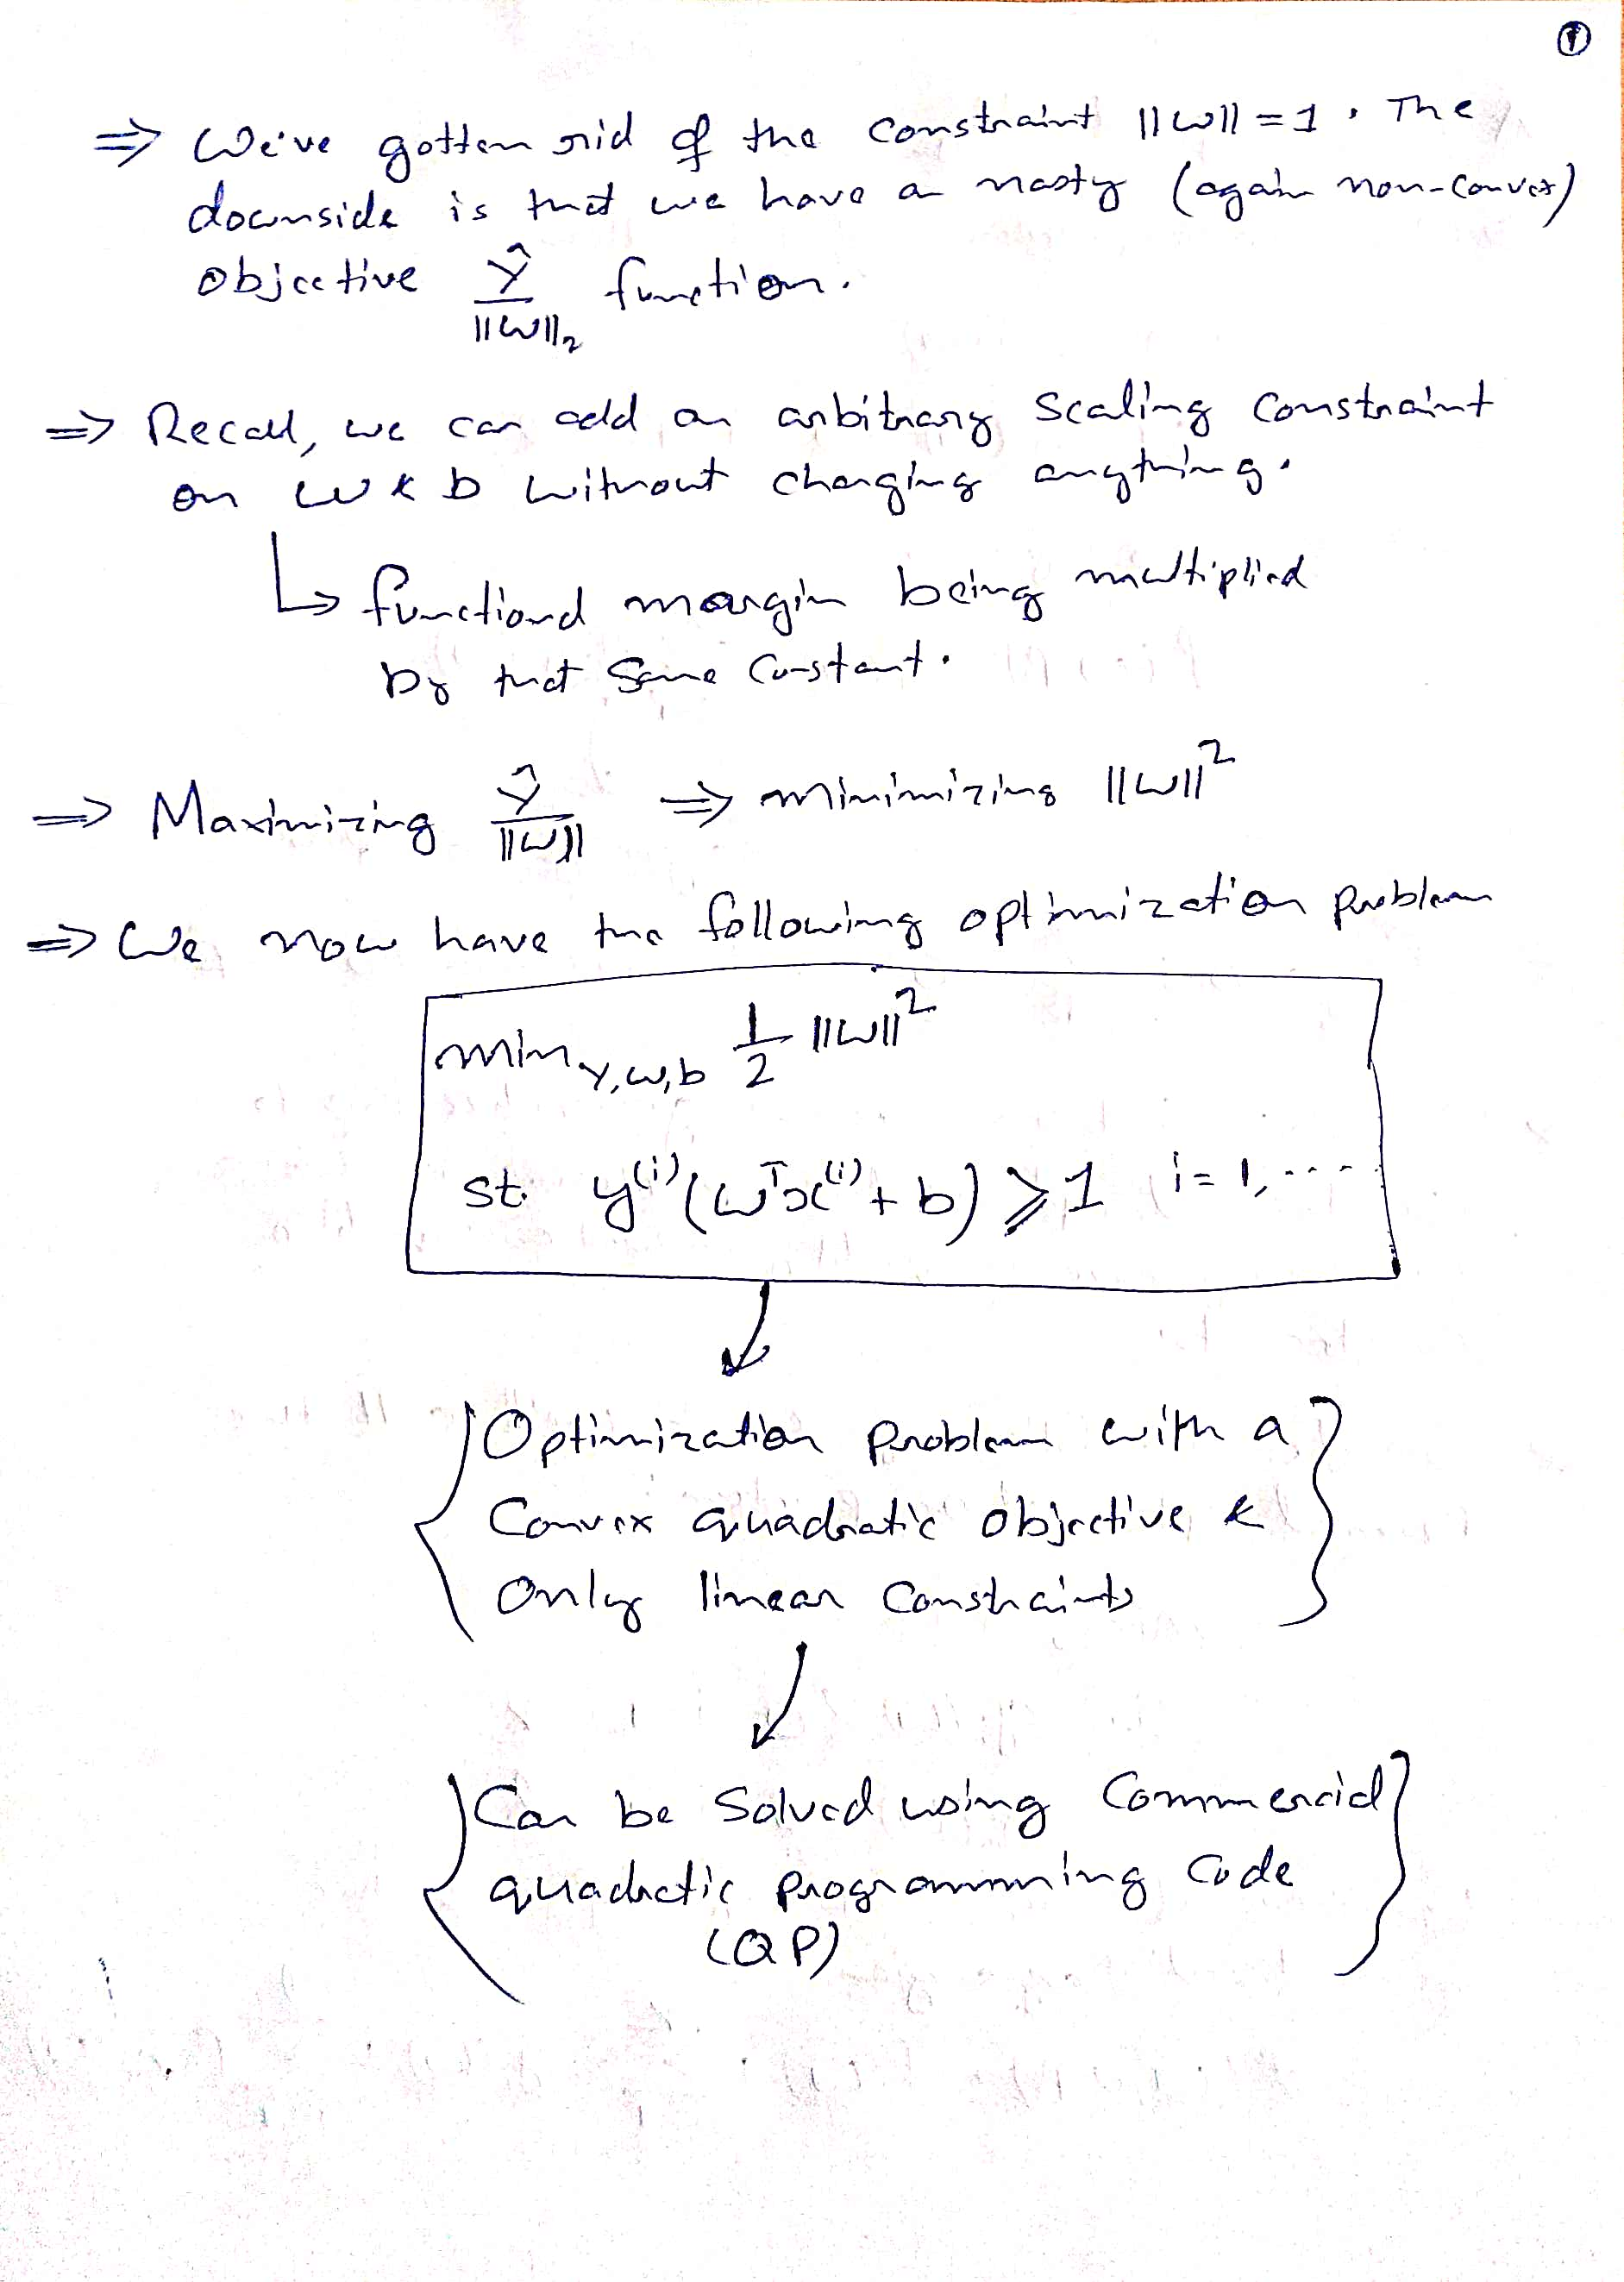 ⇒ We've gotten rid of the constraint ||w|| = 1. The
downside is that we have a nasty (again non-convex)
objective γ̂/||w||₂ function.
⇒ Recall, we can add an arbitrary scaling constraint
on w & b without changing anything.
↳ functional margin being multiplied
by that same constant.
⇒ Maximizing γ̂/||w|| ⇒ minimizing ||w||²
⇒ We now have the following optimization problem
min γ,w,b 1/2 ||w||²
st. y⁽ⁱ⁾(wᵀx⁽ⁱ⁾ + b) ⩾ 1 i = 1, ----
{Optimization problem with a
Convex quadratic objective &
Only linear Constraints}
{Can be Solved using Commercial
quadratic programming Code
(QP)}